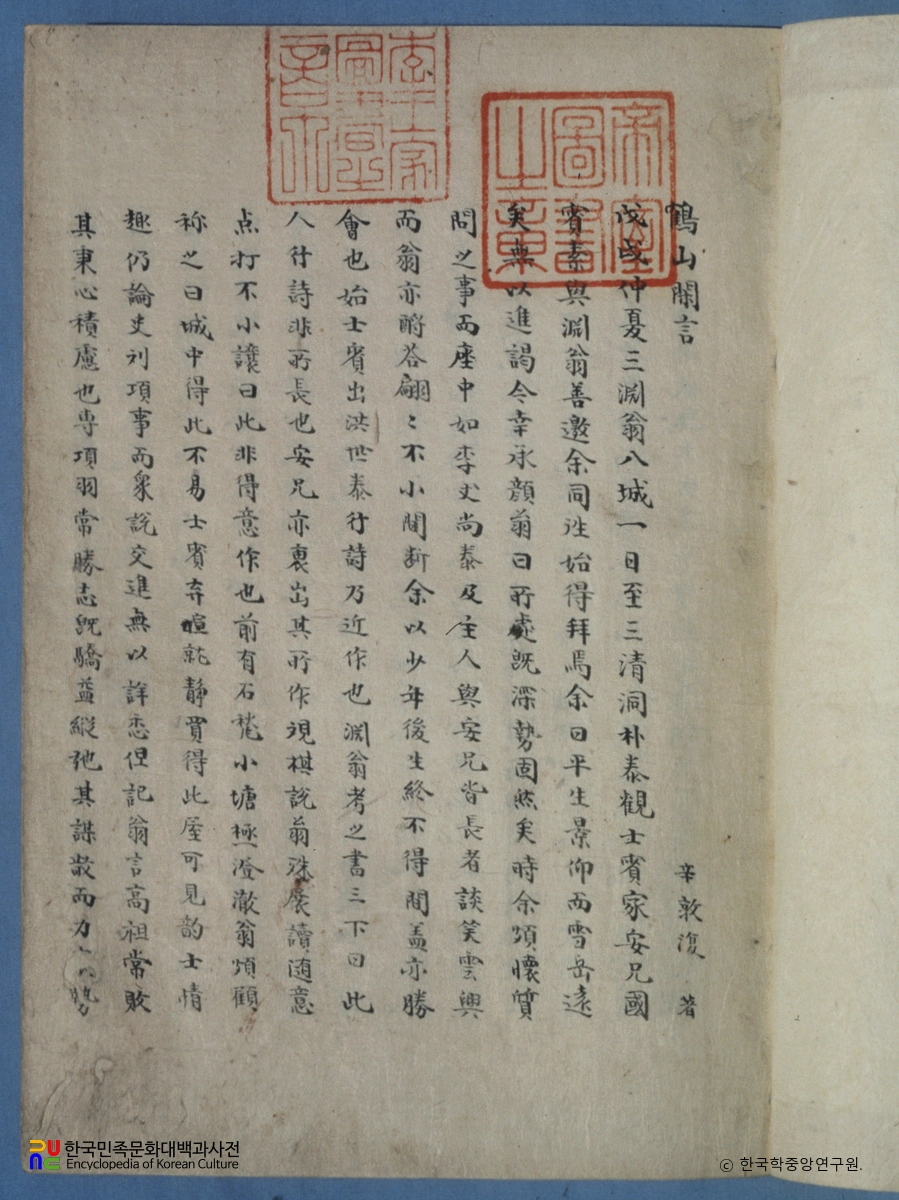 鶴山閑言
辛敦復 著
戊戌仲夏三淵翁入城一日至三清洞朴泰觀士賓家安兄國
賓素與淵翁善邀余同往始得拜焉余曰平生景仰而雪岳遠
矣無以進謁今幸承顔翁曰所處旣深勢固然矣時余頗懷質
問之事而座中如李丈尚泰及主人與安兄皆長者談笑雲興
而翁亦酬答翩〻不小間斷余以少年後生終不得間盖亦勝
會也始士賓出洪世泰行詩乃近作也淵翁考之書三下曰此
人行詩非所長也安兄亦裏出其所作視棋說翁殊展讀随意
点打不小讓曰此非得意作也前有石梵小塘極澄澈翁頻顧
称之曰城中得此不易士賓弃喧就静買得此屋可見韵士情
趣仍論史刘項事而衆說交進無以詳悉但記翁言高祖常敗
其秉心積慮也専項羽常勝志旣驕益縱弛其謀散而力
勢
帝室圖書之章
李王家圖書之章
한국민족문화대백과사전
Encyclopedia of Korean Culture
© 한국학중앙연구원.